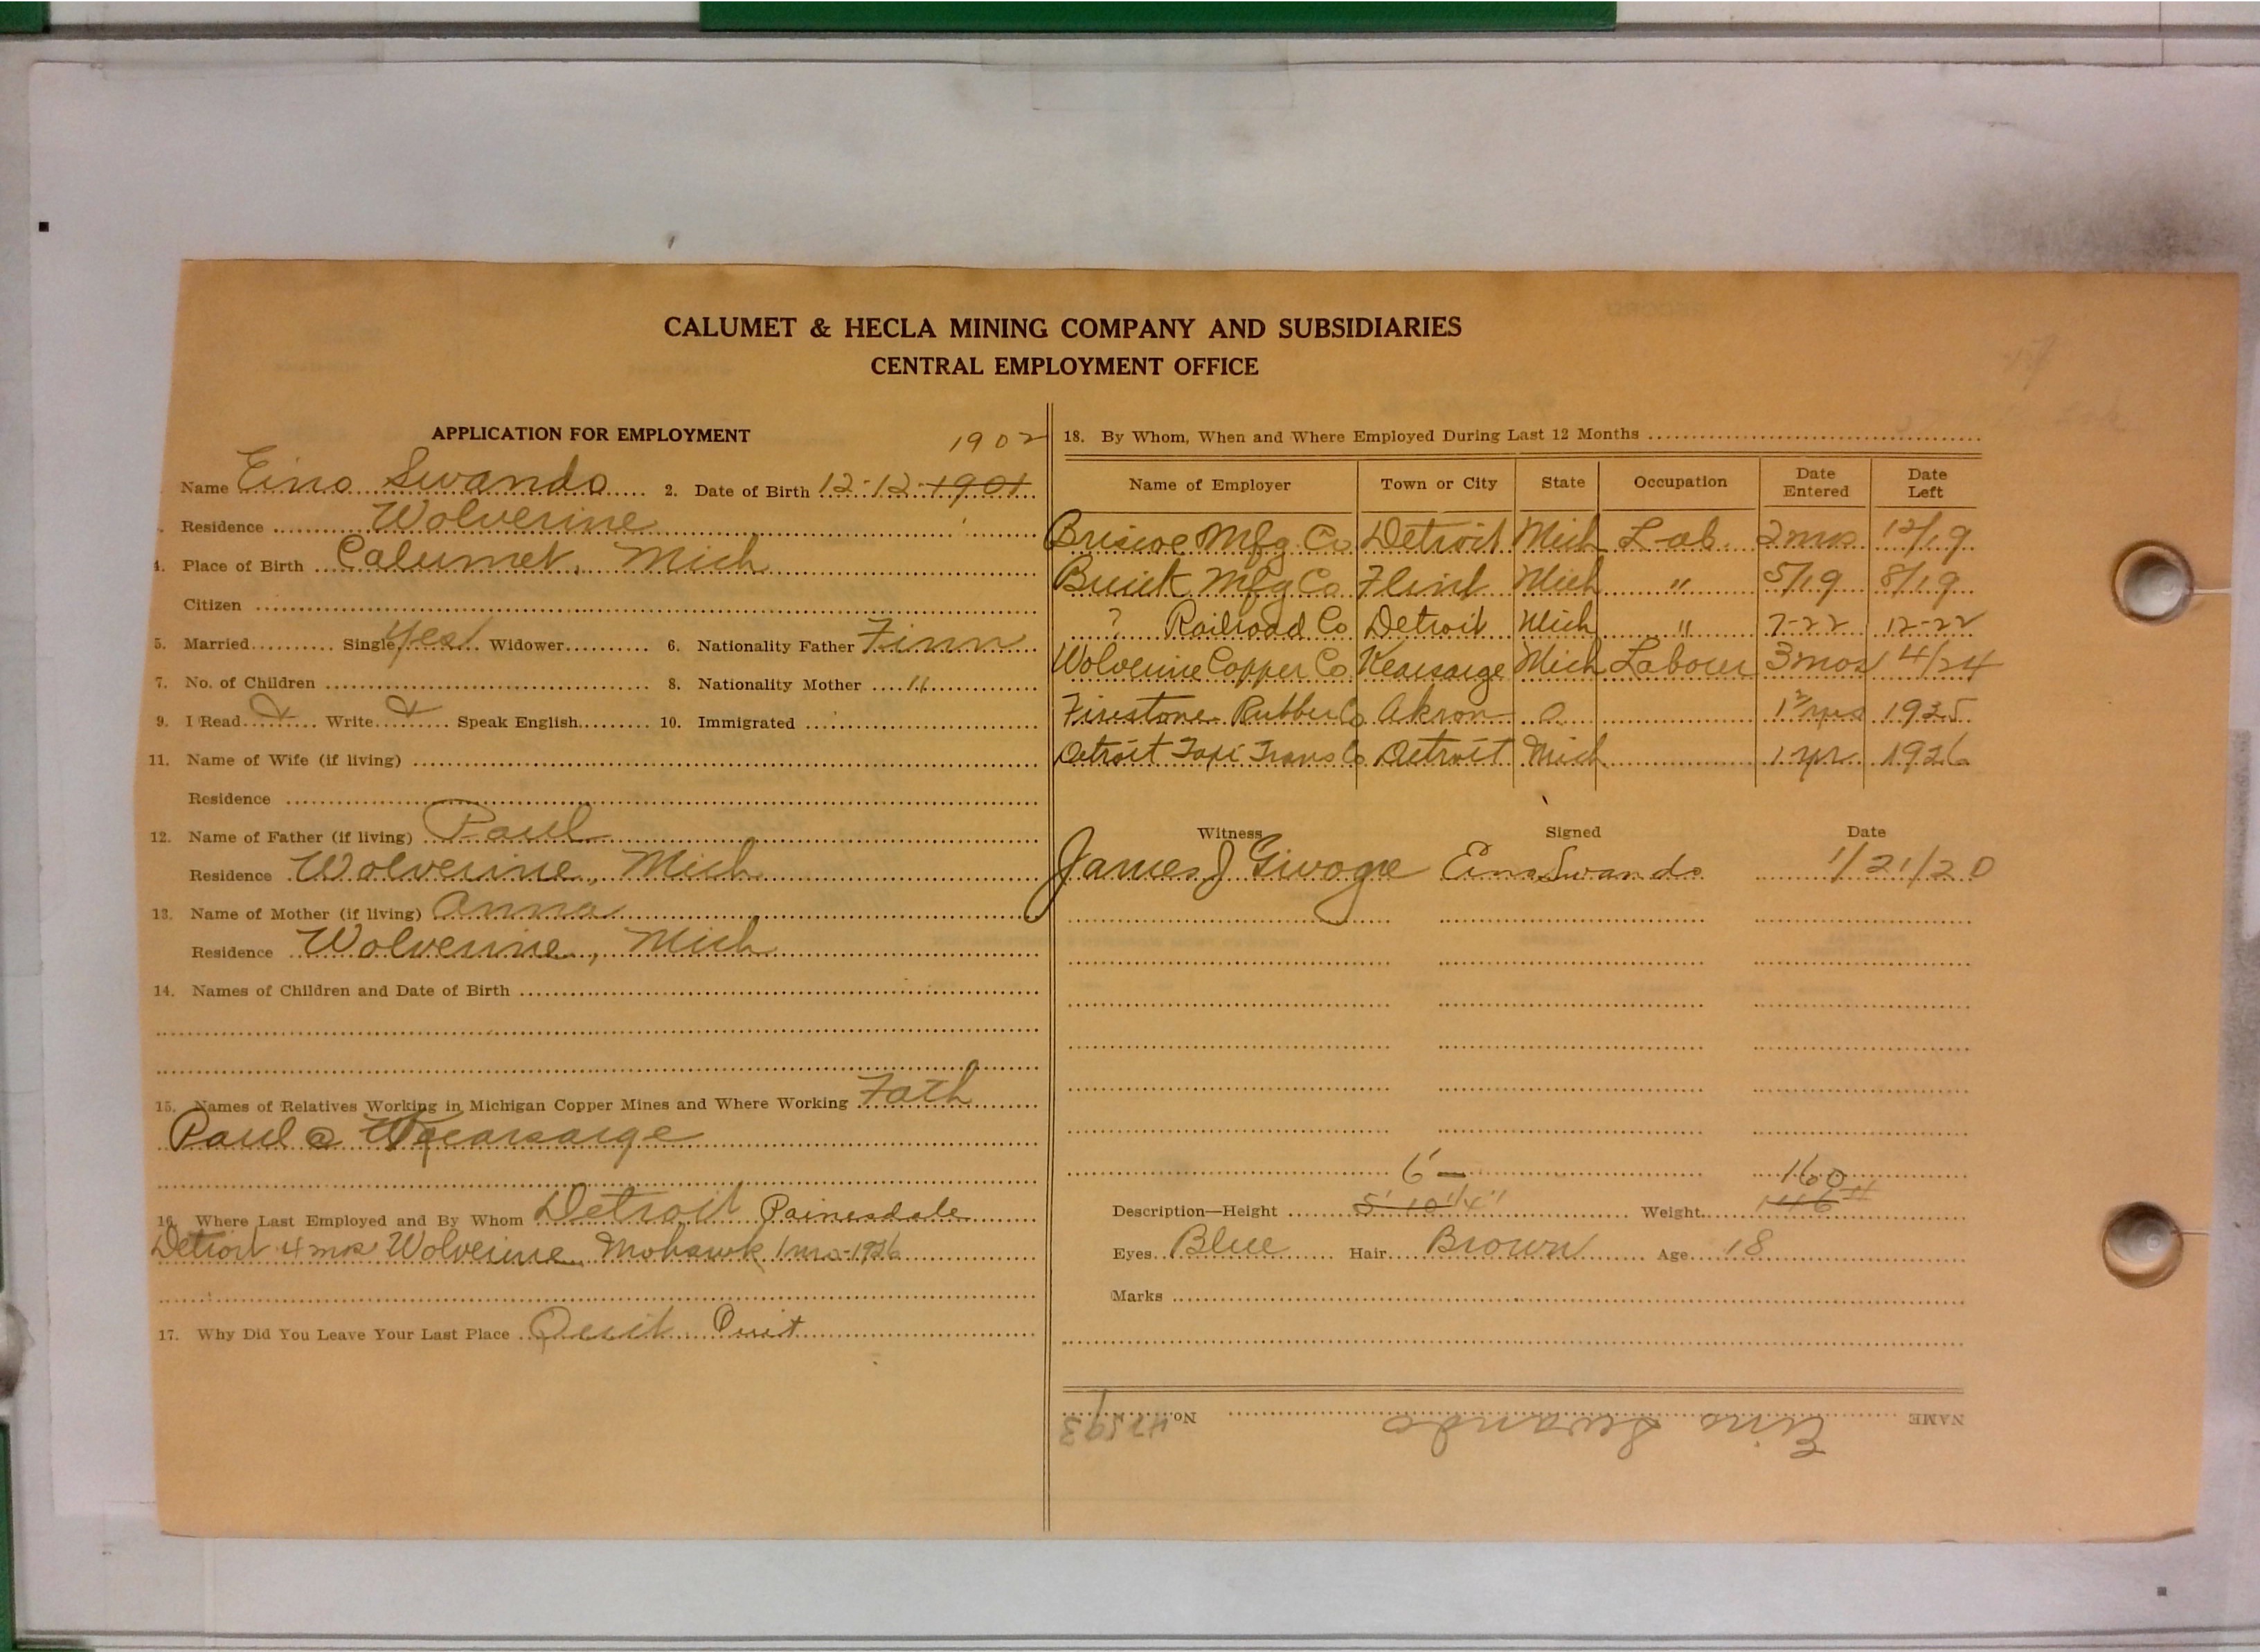 CALUMET & HECLA MINING COMPANY AND SUBSIDIARIES
CENTRAL EMPLOYMENT OFFICE
APPLICATION FOR EMPLOYMENT
1902
Name Eino Swando 2. Date of Birth 12-12-1901
Residence Wolverine
4. Place of Birth Calumet, Mich
Citizen
5. Married Single Yes Widower 6. Nationality Father Finn
7. No. of Children 8. Nationality Mother 11
9. I Read Write Speak English 10. Immigrated
11. Name of Wife (if living)
Residence
12. Name of Father (if living) Paul
Residence Wolverine, Mich
13. Name of Mother (if living) Anna
Residence Wolverine, Mich
14. Names of Children and Date of Birth
15. Names of Relatives Working in Michigan Copper Mines and Where Working Fath
Paul @ Kearsarge
16. Where Last Employed and By Whom Detroit Painesdale
Detroit 4 mos Wolverine Mohawk 1 mo-1926
17. Why Did You Leave Your Last Place Quit Quit
18. By Whom, When and Where Employed During Last 12 Months
Name of Employer Town or City State Occupation Date Entered Date Left
Briscoe Mfg Co Detroit Mich Lab. 2 mos 12/19
Buick Mfg Co Flint Mich " 5/19 8/19
? Railroad Co Detroit Mich " 7-22 12-22
Wolverine Copper Co Kearsarge Mich Labour 3 mos 4/24
Firestone Rubber Co Akron O 1925
Detroit Taxi Trans Co Detroit Mich 1 yr 1926
Witness Signed Date
James J Eino Swando 1/21/20
6'— 160
Description—Height 5' 10 1/4" Weight 146 #
Eyes Blue Hair Brown Age 18
Marks
NAME Eino Swando No. 47593